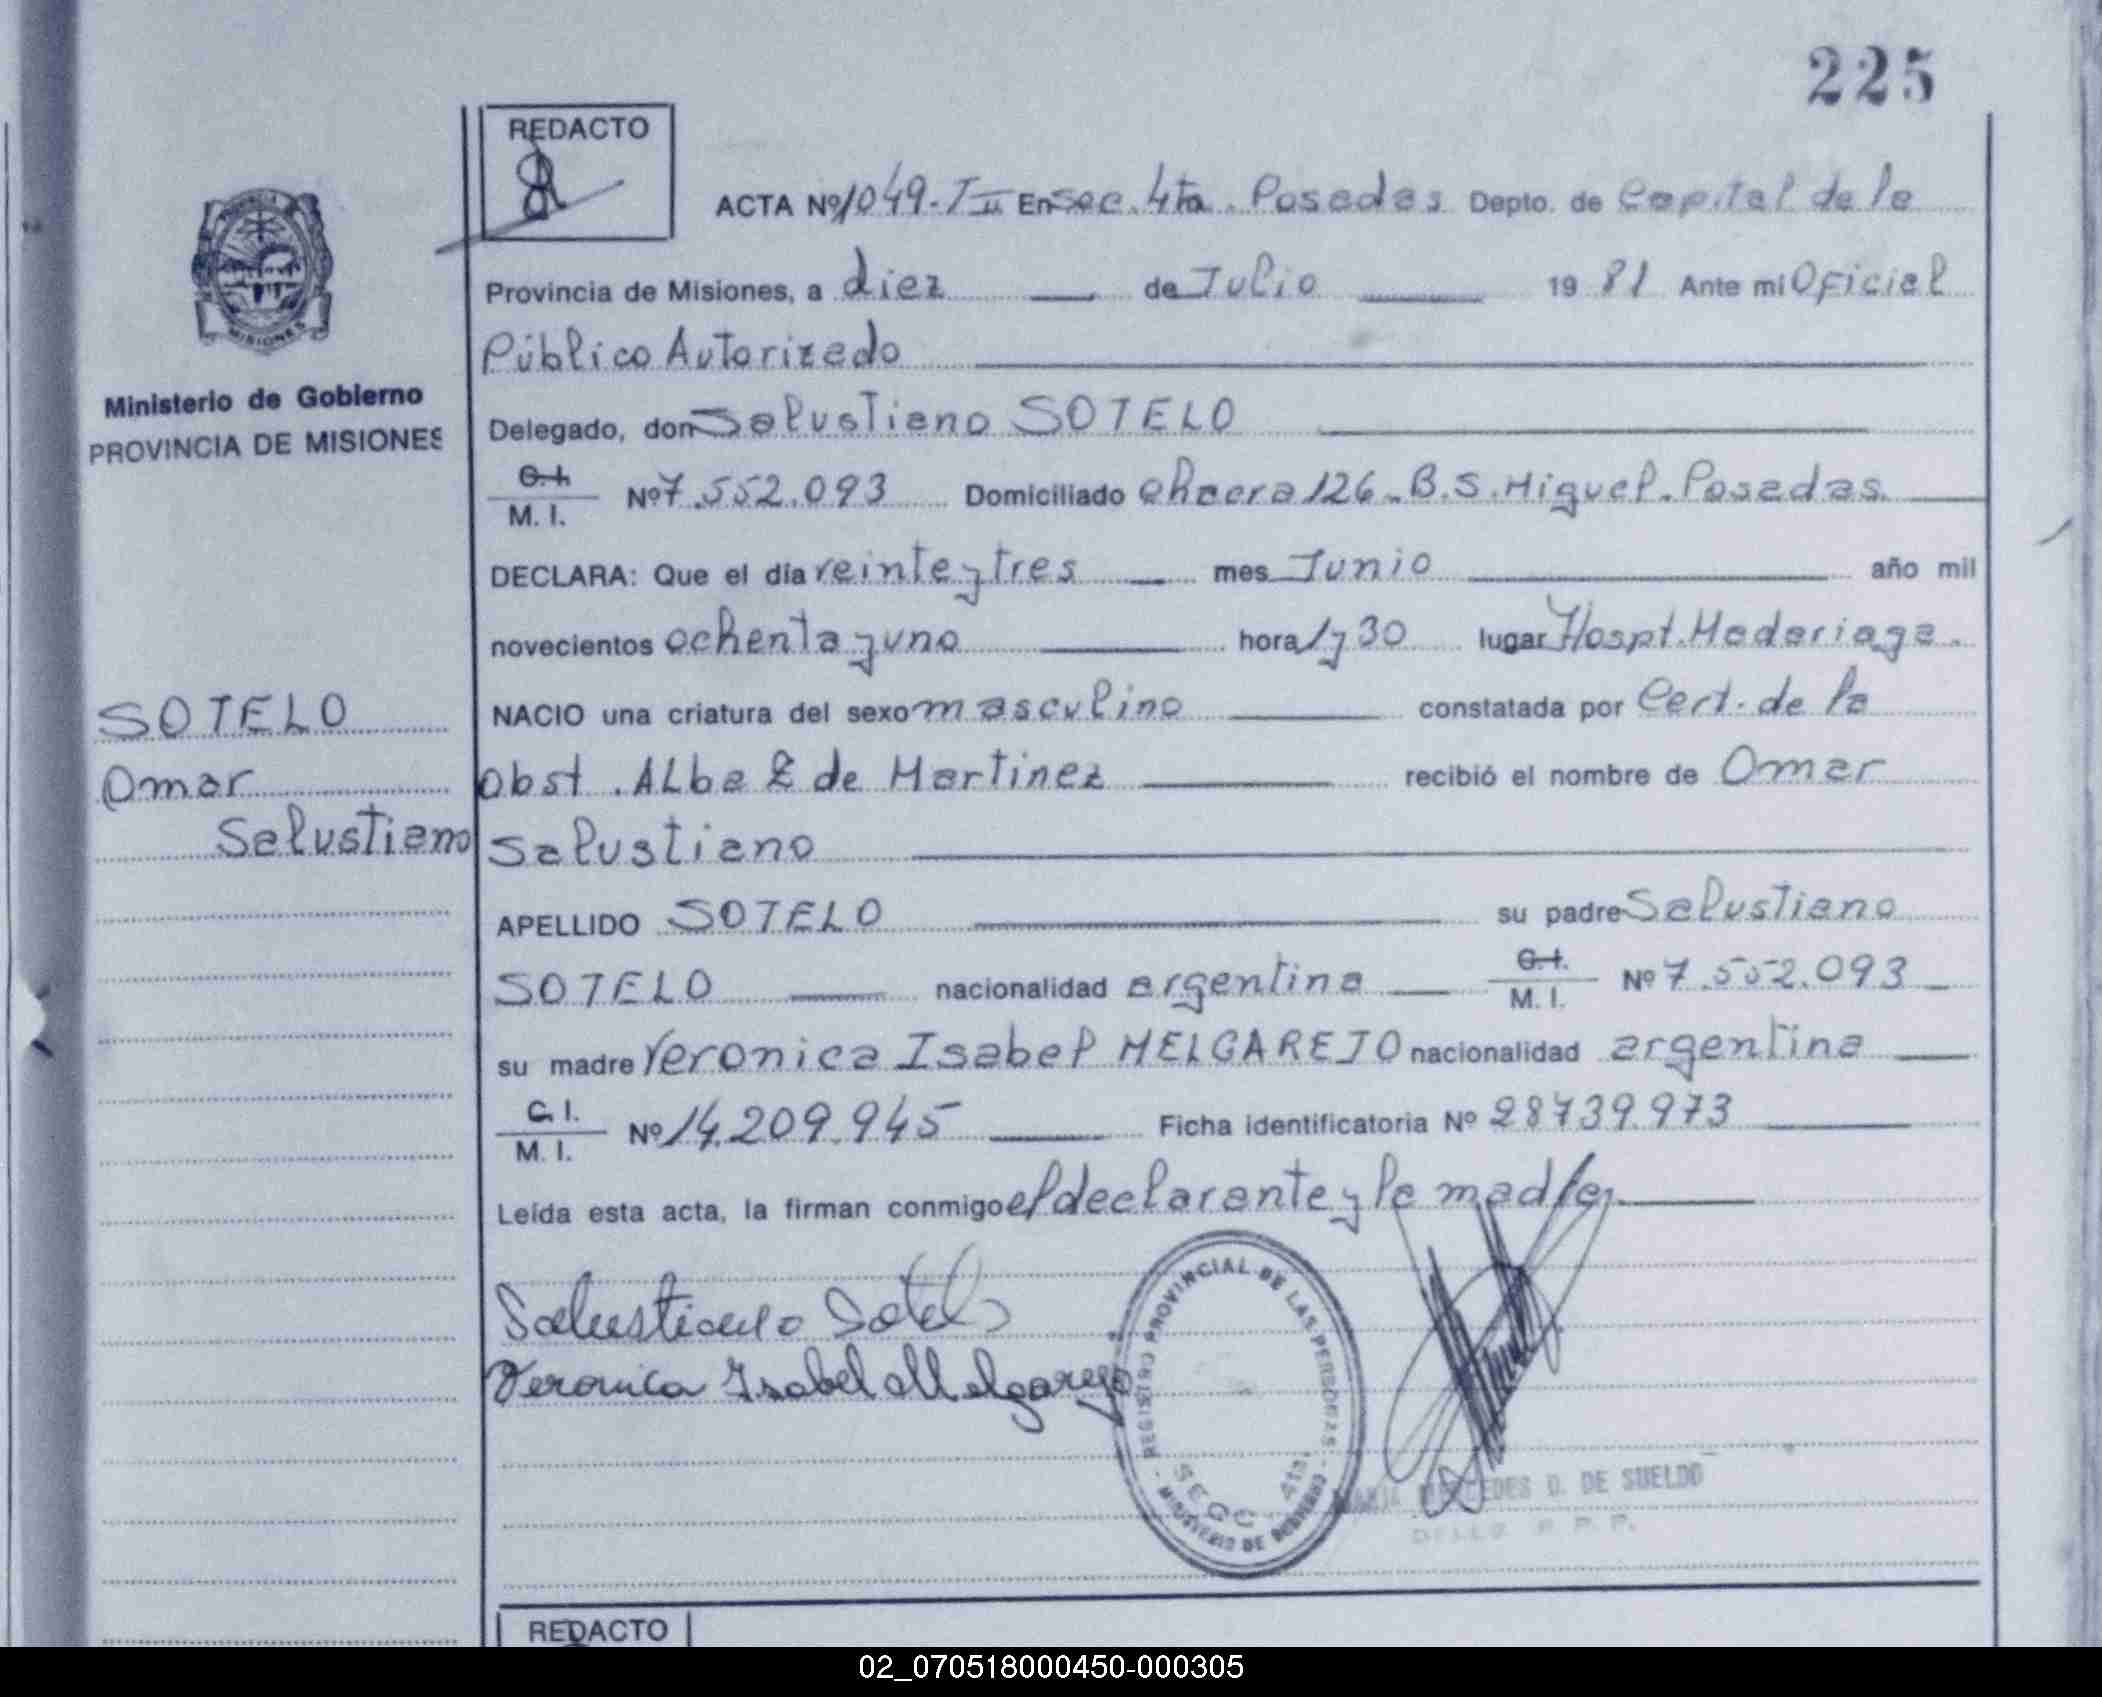 225
REDACTO
ACTA Nº 1049-T III En Sec. 4ta. Posadas Depto. de Capital de la
Provincia de Misiones, a diez de Julio 19 81 Ante mi Oficial
Público Autorizado
Delegado, don Salustiano SOTELO
C.I.
M. I. Nº 7.552.093 Domiciliado chacra 126. B. S. Miguel. Posadas
DECLARA: Que el día veinte y tres mes Junio año mil
novecientos ochenta y uno hora 1 y 30 lugar Hospt. Madariaga.
NACIO una criatura del sexo masculino constatada por Cert. de la
obst. ALba Z de Martinez recibió el nombre de Omar
Salustiano
APELLIDO SOTELO su padre Salustiano
SOTELO nacionalidad argentina C.I. M. I. Nº 7.552.093
su madre Veronica Isabel MELGAREJO nacionalidad argentina
C. I.
M. I. Nº 14.209.945 Ficha identificatoria Nº 28739.973
Leída esta acta, la firman conmigo el declarante y la madre.
Salustiano Sotelo
Veronica Isabel Melgarejo
Ministerio de Gobierno
PROVINCIA DE MISIONES
MISIONES
SOTELO
Omar
Salustiano
REGISTRO PROVINCIAL DE LAS PERSONAS
SECC. 4ta.
MINISTERIO DE GOBIERNO
MERCEDES D. DE SUELDO
REDACTO
02_070518000450-000305